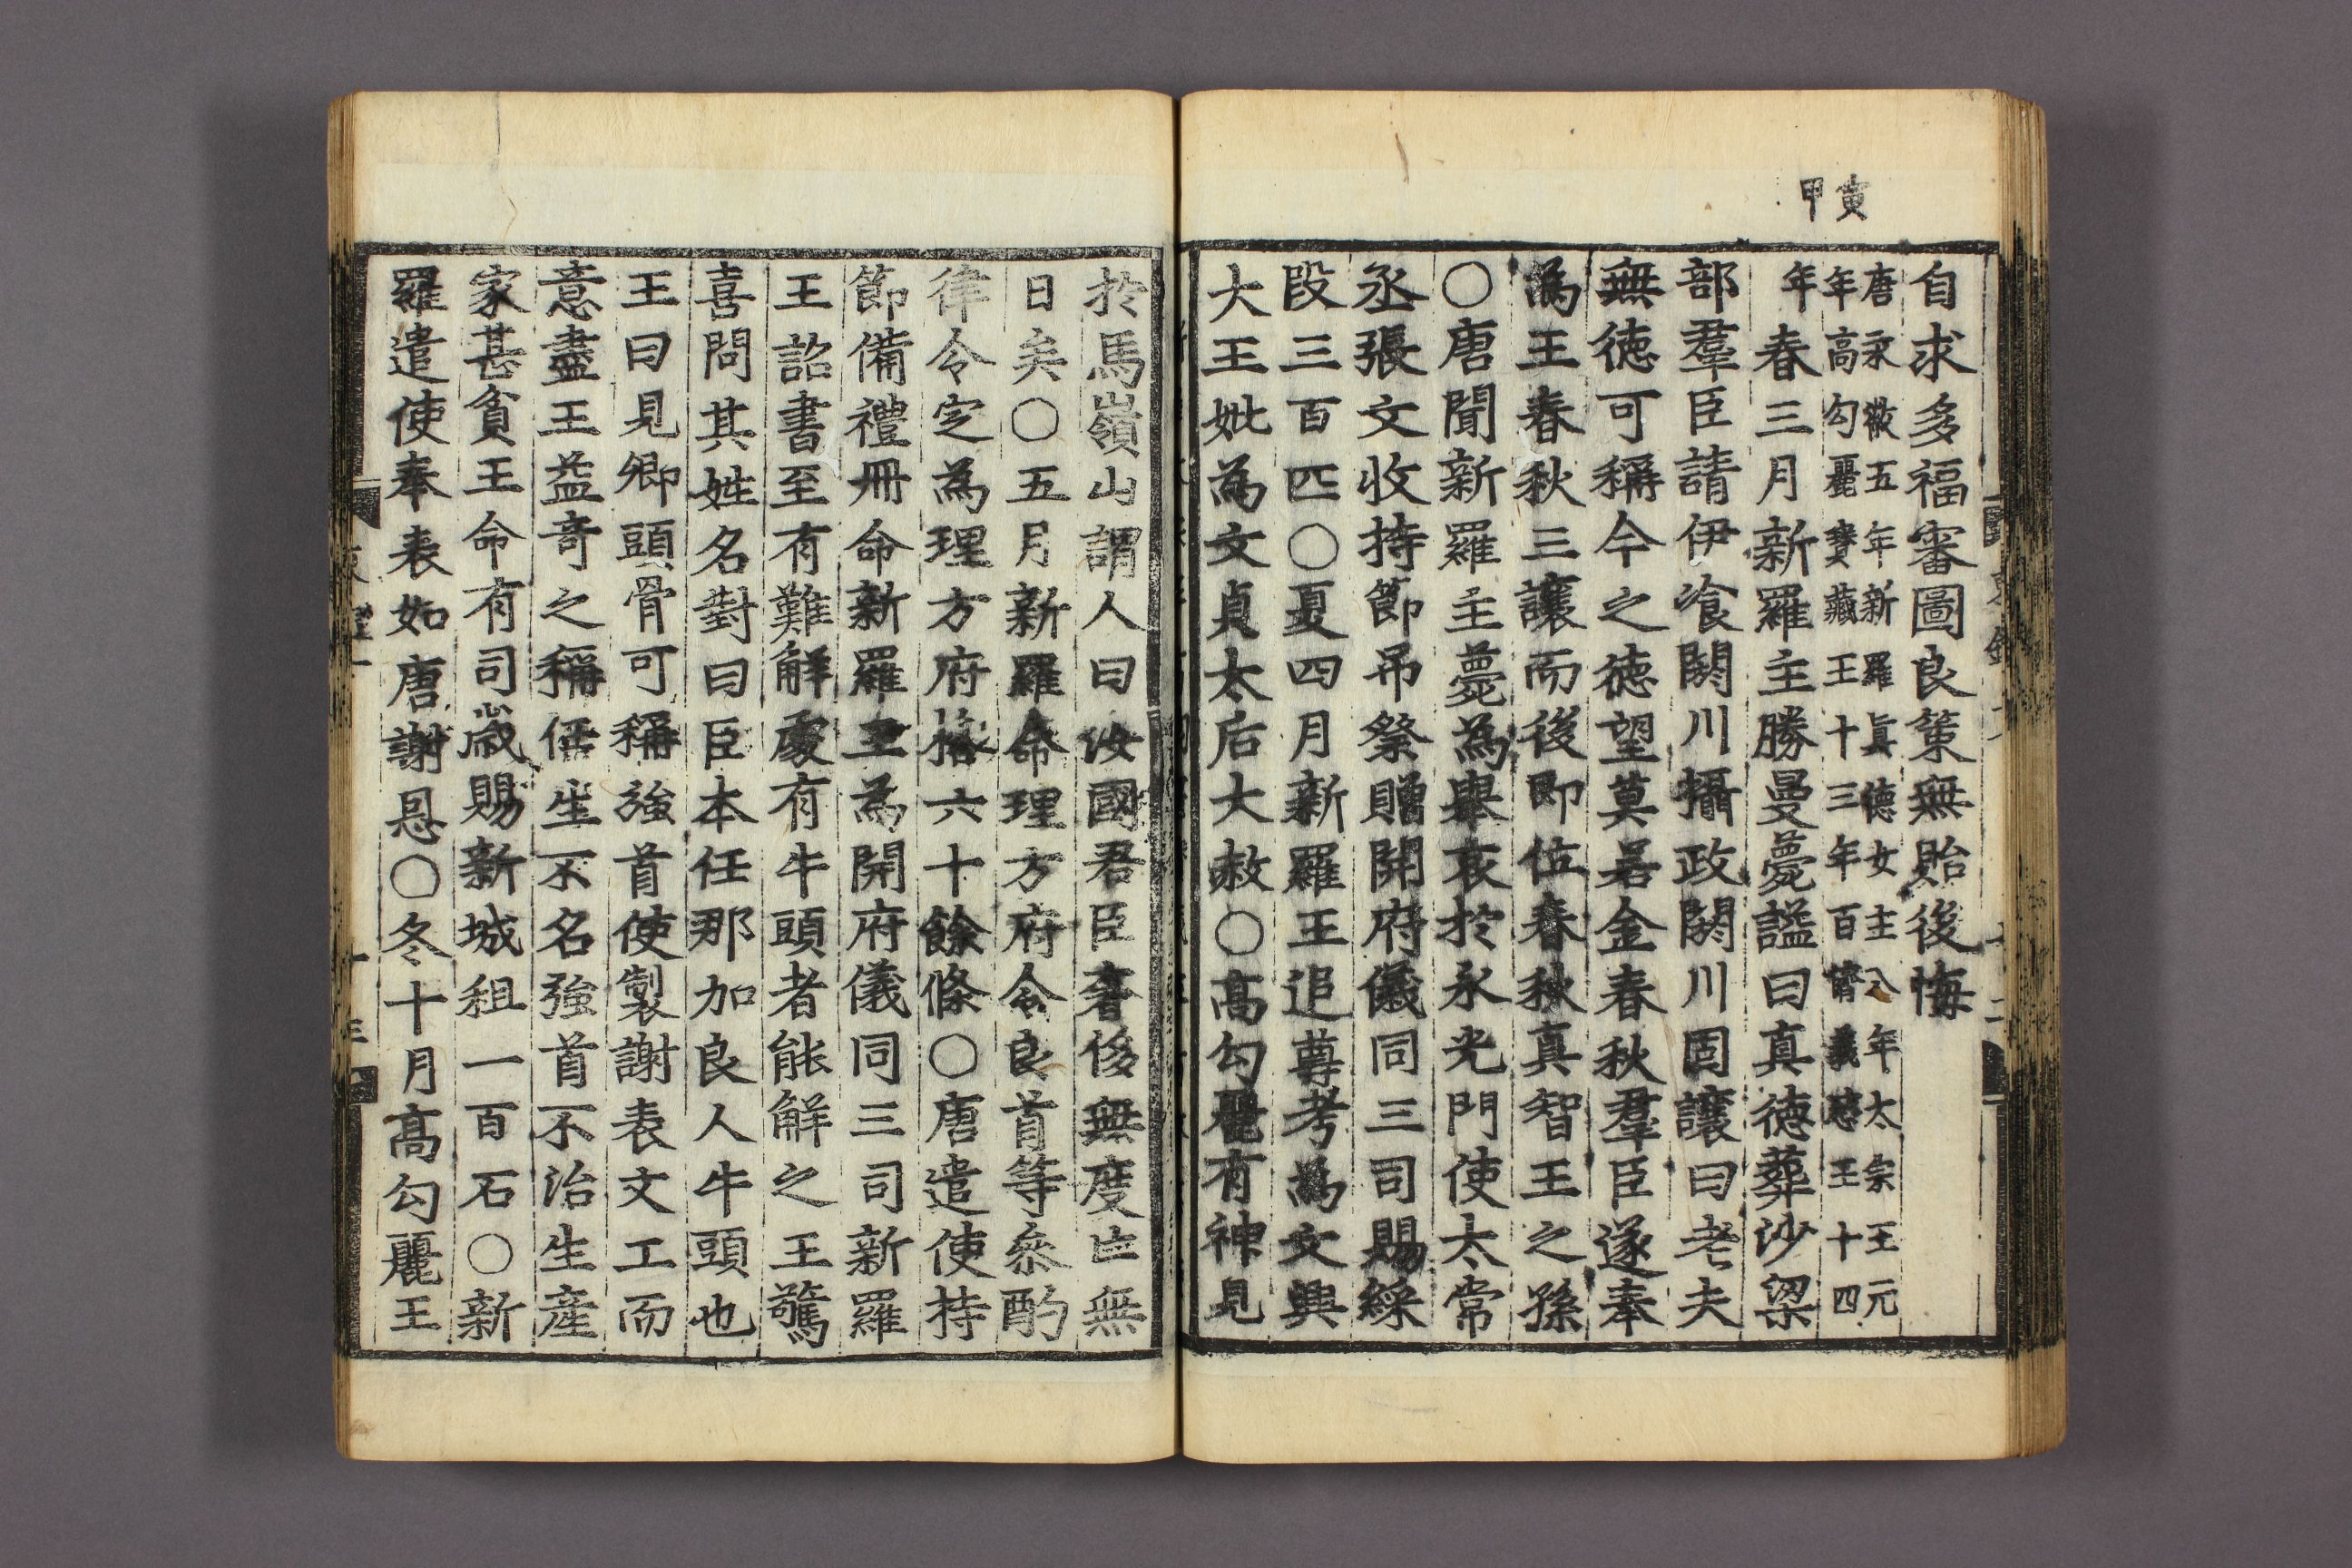 甲寅
自求多福審圖良策無貽後悔
唐永徽五年新羅眞德女主八年太宗王元
年高勾麗寶藏王十三年百濟義慈王十四
年春三月新羅主勝曼薨謚曰真徳葬沙梁
部羣臣請伊飡閼川攝政閼川固讓曰老夫
無徳可稱今之徳望莫若金春秋羣臣遂奉
爲王春秋三讓而後即位春秋真智王之孫
〇唐聞新羅主薨為舉哀於永光門使太常
丞張文收持節吊祭贈開府儀同三司賜綵
段三百匹〇夏四月新羅王追尊考爲文興
大王妣為文貞太后大赦〇高勾麗有神見
於馬嶺山謂人曰汝國君臣奢侈無度亡無
日矣〇五月新羅命理方府令良首等叅酌
律令定為理方府格六十餘條〇唐遣使持
節備禮冊命新羅王為開府儀同三司新羅
王詔書至有難解處有牛頭者能解之王驚
喜問其姓名對曰臣本任那加良人牛頭也
王曰見卿頭骨可稱強首使製謝表文工而
意盡王益奇之稱任生不名強首不治生產
家甚貧王命有司歲賜新城租一百石〇新
羅遣使奉表如唐謝恩〇冬十月高勾麗王